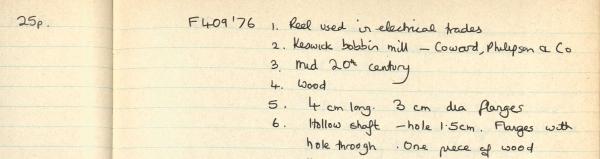 25p. F409'76 1. Reel used in electrical trades
2. Keswick bobbin mill - Coward, Philipson & Co
3. Mid 20th century
4. Wood
5. 4 cm long. 3 cm dia flanges
6. Hollow shaft - hole 1.5cm. Flanges with
hole through. One piece of wood